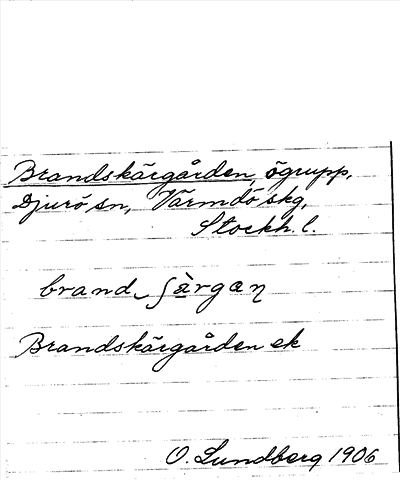 Brandskärgården, ögrupp,
Djurö sn, Värmdö skg,
Stockh. l.
brand ʃärgan
Brandskärgården ek
O. Lundberg 1906